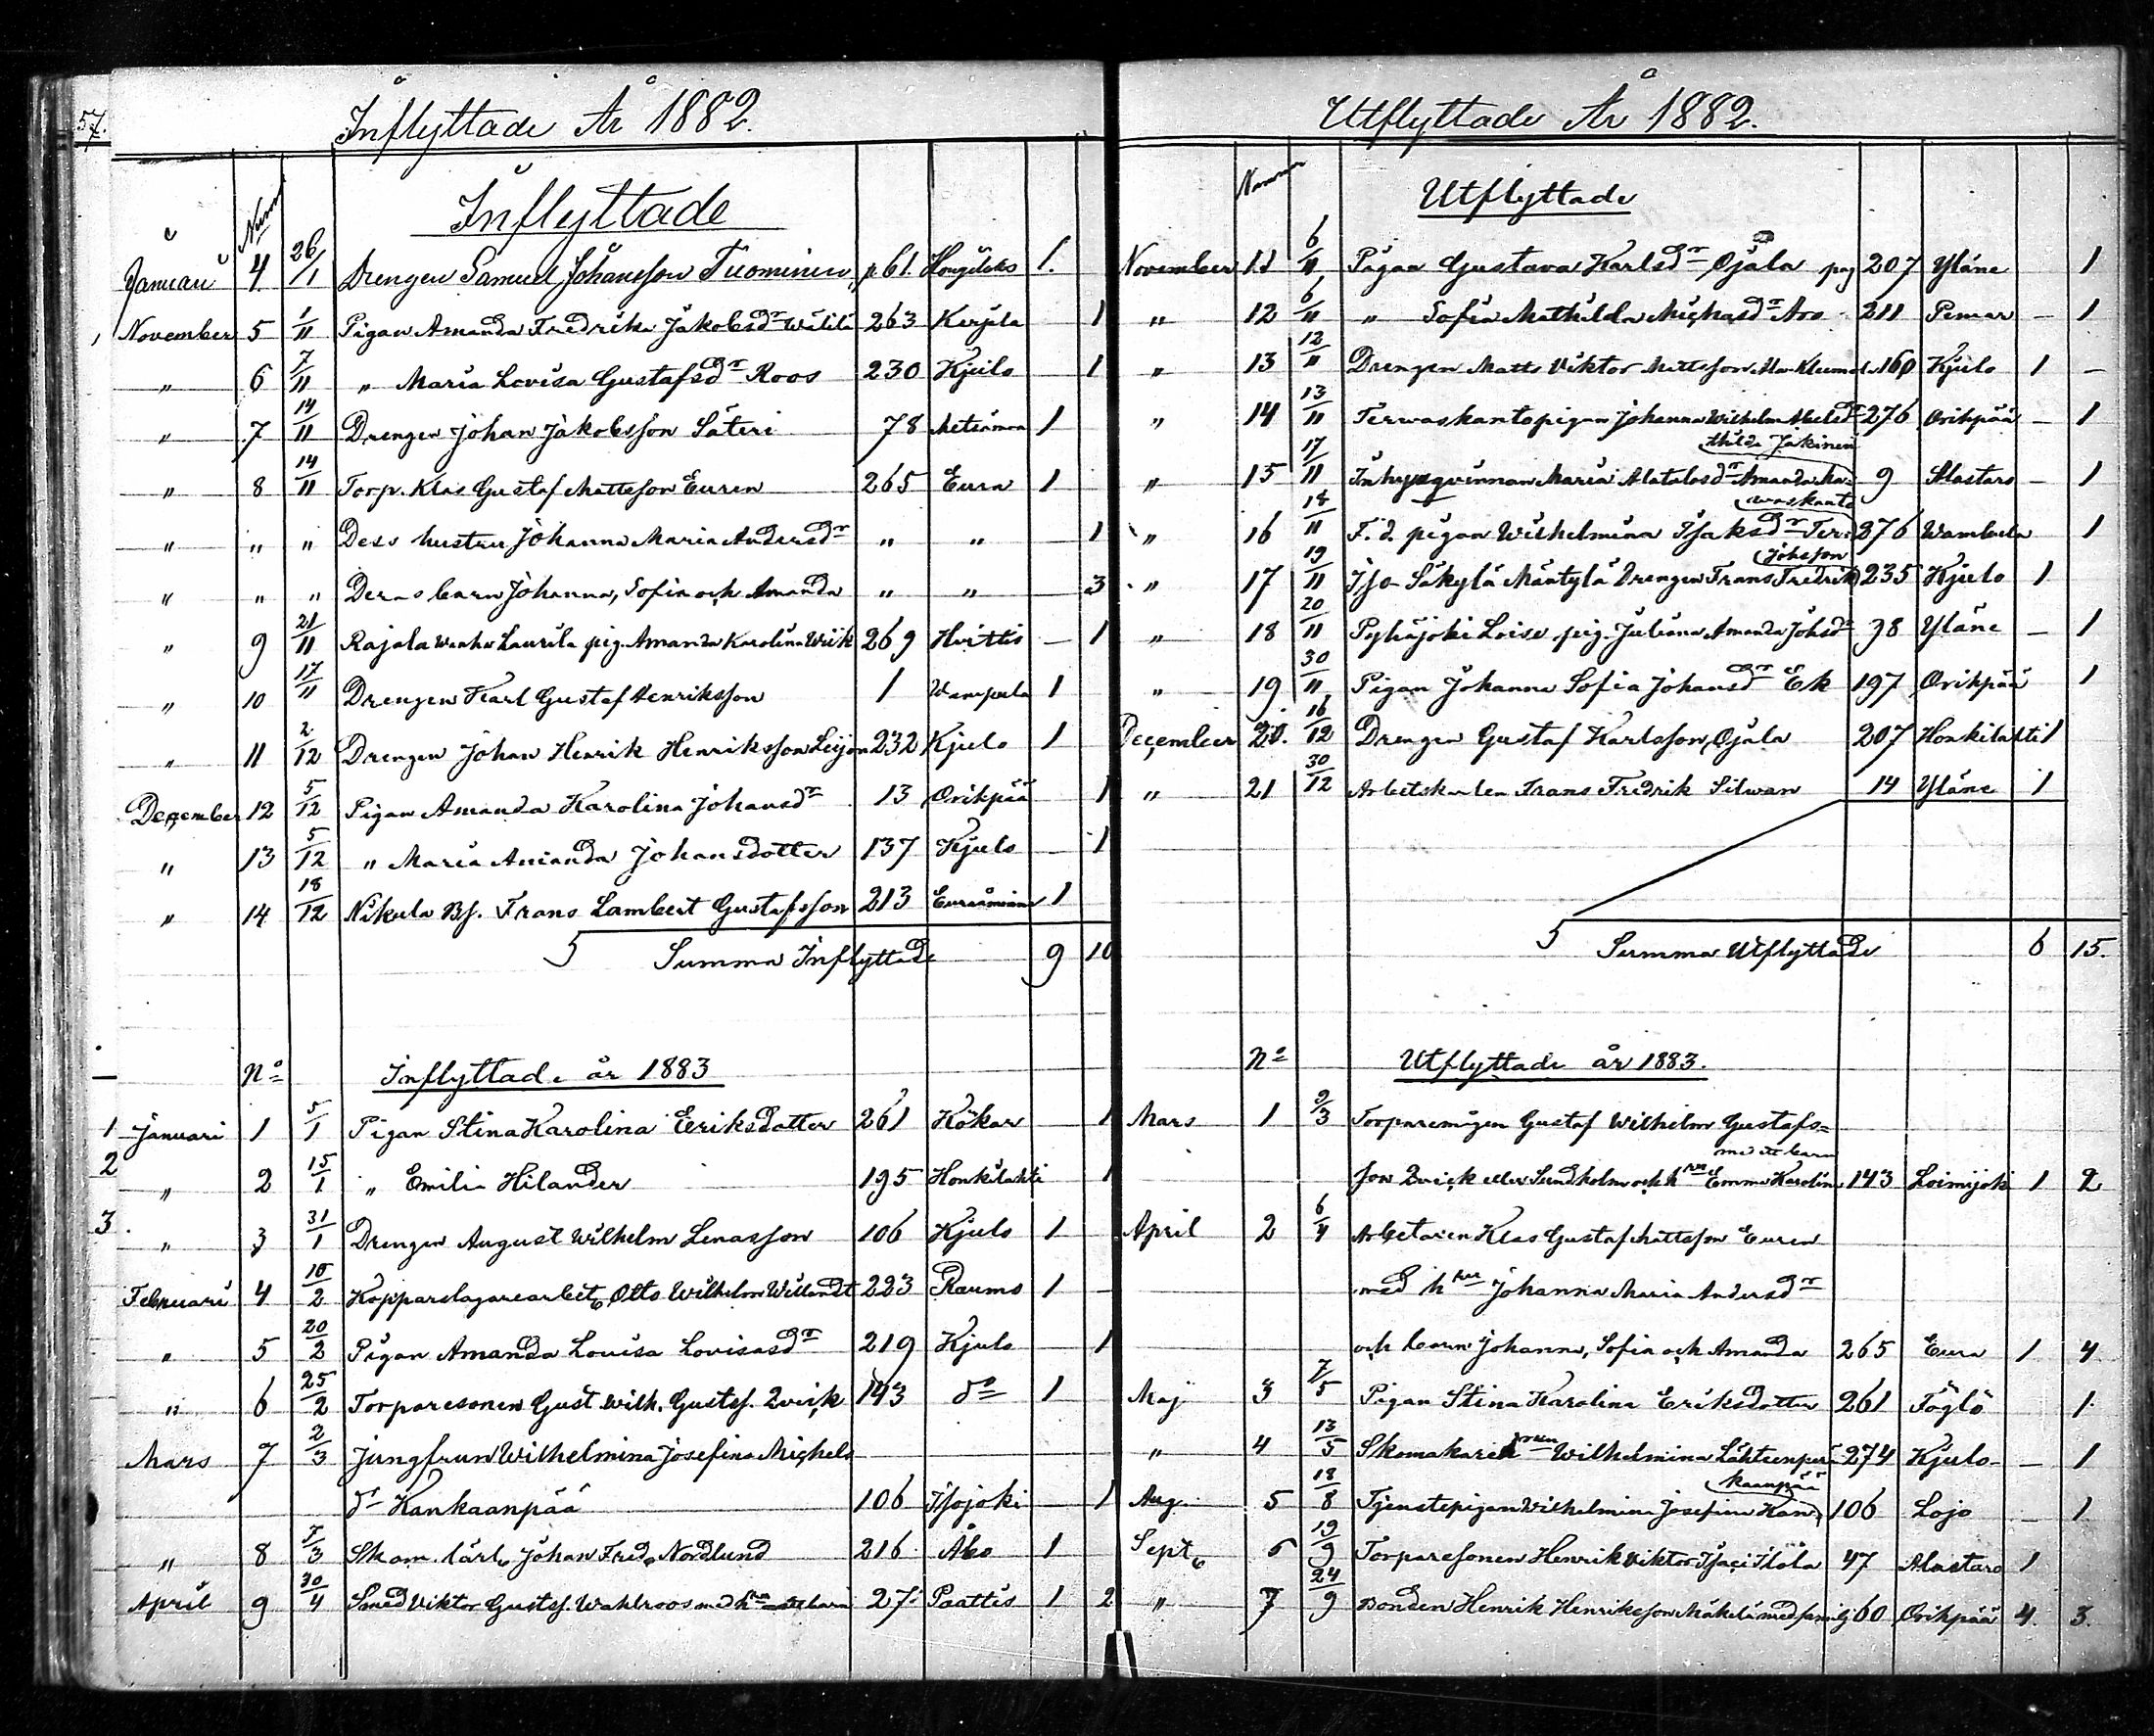 57.
Inflyttade År 1882.
Num
Inflyttade
Januari 4 26/1 Drengen Samuel Johansson Tuominen p. 61 1.
November 5 1/11 Pigan Amanda Fredrika Jakobsdr 263 Kerjala 1
" 6 7/11 " Maria Lovisa Gustafsdr Roos 230 Kjulo 1
" 7 14/11 Drengen Johan Jakobsson Säteri 78 Metsämaa 1
" 8 14/11 Torp. Klas Gustaf Mattsson Euren 265 Eura 1
" " " Dess hustru Johanna Maria Andersdr " " 1
" " " Deras barn Johanna, Sofia och Amanda " " 3
" 9 21/11 Rajala Laurila pig. Amanda Karolina Wiik 269 Hvittis – 1
" 10 17/11 Drengen Karl Gustaf Henriksson 1 Wampula 1
" 11 2/12 Drengen Johan Henrik Henriksson Leijon 232 Kjulo 1
December 12 5/12 Pigan Amanda Karolina Johansdr 13 Orihpää 1
" 13 5/12 " Maria Amanda Johansdotter 137 Kjulo – 1
" 14 18/12 Nikula Bs. Frans Lambert Gustafsson 213 Euraåminne 1
Summa Inflyttade 9 10
No Inflyttade år 1883
1 Januari 1 5/1 Pigan Stina Karolina Eriksdotter 261 Kökar 1
2 " 2 15/1 " Emilia Hilander 195 Honkilahti 1
3. " 3 31/1 Drengen August Wilhelm Lenasson 106 Kjulo 1
Februari 4 10/2 Kopparslagarearbet. Otto Wilhelm Willandt 223 Raumo 1
" 5 20/2 Pigan Amanda Lovisa Lovisasdr 219 Kjulo 1
" 6 25/2 Torparesonen Gust. Wilh. Gustfs. Qvick 143 do 1
Mars 7 2/3 Jungfrun Wilhelmina Josefina Michels
dr Kankaanpää 106 Isojoki 1
" 8 7/3 Skom. lärl. Johan Fred. Nordlund 216 Åbo 1
April 9 30/4 Smed Viktor Gustfs. Wahlroos med hru barn 27 Paattis 1 2
Utflyttade År 1882.
Utflyttade
November 11 6/11 Pigan Gustava Karlsdr Ojala pag 207 Yläne 1
" 12 6/11 " Sofia Mathilda Michasdr Aro 211 Pemar – 1
" 13 12/11 Drengen Matts Viktor Mattsson 160 Kjulo 1 –
" 14 13/11 Terwaskantopigan Johanna Wilhelm. Abelsdr 276 Orihpää – 1
" 15 17/11 Inhysqvinnan Maria Alatalosdr Amanda 9 Alastaro – 1
waskanto
" 16 18/11 F. d. pigan Wilhelmina Isaksdr Ter 276 Wambula 1
Johsson
" 17 19/11 Iso Säkylä Mäntylä Drengen Frans Fredrik 235 Kjulo 1
" 18 20/11 Pyhäjoki Loise pig. Juliana Amanda Johsdr 38 Yläne – 1
" 19 30/11 Pigan Johanna Sofia Johansdr Ek 197 Orihpää 1
December 20. 16/12 Drengen Gustaf Karlsson Ojala 207 Honkilahti 1
" 21 30/12 Arbetskarlen Frans Fredrik Silwan 14 Yläne 1
Summa Utflyttade 6 15.
No Utflyttade år 1883.
Mars 1 9/3 Torparemågen Gustaf Wilhelm Gustafs=
med ett barn
son Qvick eller Sundholm och hru Emma Karolina 143 Loimijoki 1 2
April 2 6/4 Arbetaren Klas Gustaf Mattsson Euren
med hru Johanna Maria Andersdr
och barn Johanna, Sofia och Amanda 265 Eura 1 4
Maj 3 7/5 Pigan Stina Karolina Eriksdotter 261 Föglö 1
" 4 13/5 Skomakare Wilhelmina Lähteenperä 274 Kjulo – 1
kaanpää
Aug. 5 18/8 Tjenstepigan Wilhelmina Josefina Kan 106 Lojo – 1
Sept. 6 19/9 Torparesonen Henrik Viktor 47 Alastaro 1
" 7 24/9 Bonden Henrik Henriksson Mäkelä med familj 60 Orihpää 4. 3.